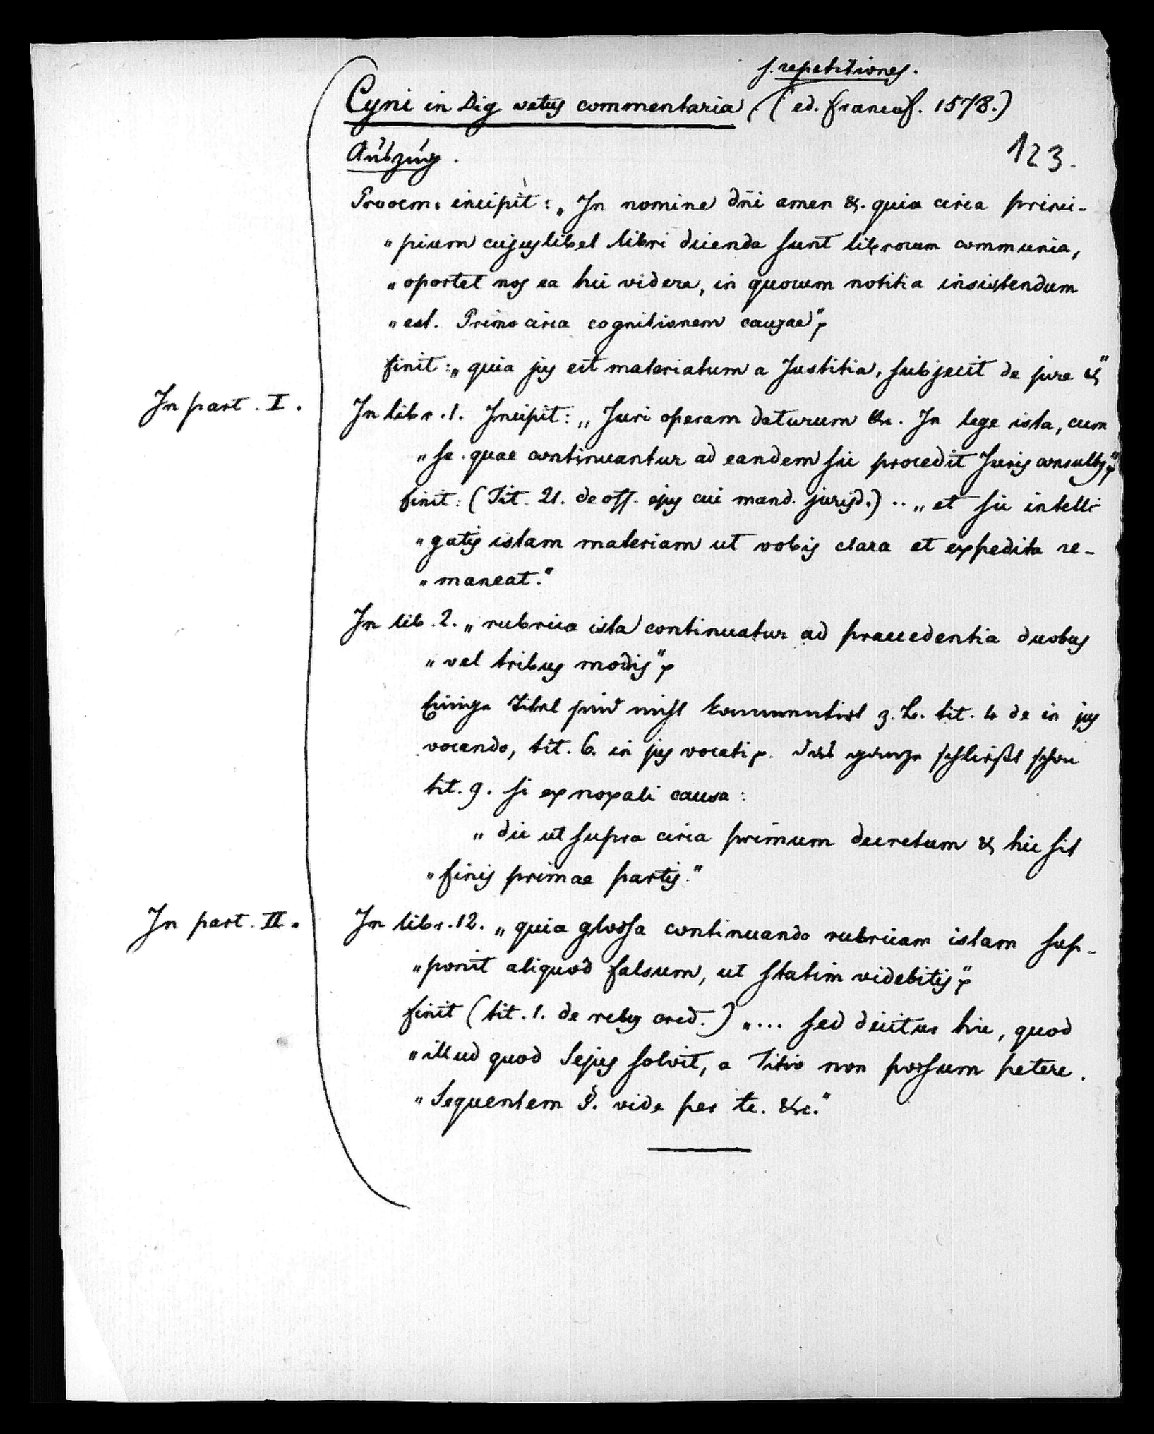 s. repetitiones.
Cyni in Dig vetus commentaria, (ed. francof. 1578.)
Auszug.
123.
Prooem: incipit: „In nomine dñi amen &. quia circa princi-
„pium cujuslibet libri dicenda sunt librorum communia,
„oportet nos ea hic videre, in quorum notitia insistendum
„est. Primo circa cognitionem causae"
finit: „quia jus est materiatum a Justitia, subjecit de jure &"
In part. I.
In libr. 1. Incipit: „Juri operam daturum &c. In lege ista, cum
„se. quae continuantur ad eandem sic procedit Juris consultus"
finit: (Tit. 21. de off. ejus cui mand. jurisd.) .. „et sic intelli
„gatis istam materiam ut vobis clara et expedita re-
„maneat."
In lib. 2. „rubrica ista continuatur ad praecedentia duobus
„vel tribus modis"
Einige Titel sind nicht kommentirt z. B. tit. 4 de in jus
vocando, tit. 6. in jus vocati. Das ganze schließt schon
tit. 9. si ex noxali causa:
„dic ut supra circa primum decretum & hic sit
„finis primae partis."
In part. II.
In libr. 12. „quia glossa continuando rubricam istam sup-
„ponit aliquod falsum, ut statim videbitis"
finit (tit. 1. de rebus cred.) „... sed dicitur hic, quod
„illud quod Sejus solvit, a Titio non possum petere.
„Sequentem §. vide per te. &c."